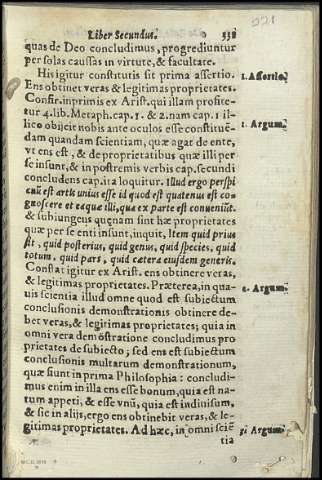 Liber Secundus. 531
221
quas de Deo concludimus, progrediuntur
per solas caussas in virtute, & facultate.
His igitur constitutis sit prima assertio. 1. Assertio.
Ens obtinet veras & legitimas proprietates.
Confir. inprimis ex Arist. qui illam profite-
tur 4. lib. Metaph. cap. 1. & 2. nam cap. 1 il-
lico obijcit nobis ante oculos esse constituē- 1. Argum.
dam quandam scientiam, quæ agat de ente,
vt ens est, & de proprietatibus quæ illi per
se insunt, & in postremis verbis cap. secundi
concludens cap. ita loquitur. Illud ergo perspi
cuū est artis unius esse id quod est quatenus est co-
gnoscere et eaque illi, qua ex parte est conueniūt.
& subiungens quænam sint hæ proprietates
quæ per se enti insunt, inquit, Item quid prius
sit, quid posterius, quid genus, quid species, quid
totum, quid pars, quid cætera eiusdem generis.
Constat igitur ex Arist. ens obtinere veras,
& legitimas proprietates. Præterea, in qua- 2. Argum.
uis scientia illud omne quod est subiectum
conclusionis demonstrationis obtinere de-
bet veras, & legitimas proprietates; quia in
omni vera demōstratione concludimus pro
prietates de subiecto, sed ens est subiectum
conclusionis multarum demonstrationum,
quæ fiunt in prima Philosophia: concludi-
mus enim in illa ens esse bonum, quia est na-
tum appeti; & esse vnū, quia est indiuisum,
& sic in alijs, ergo ens obtinebit veras, & le-
gitimas proprietates. Ad hæc, in omni sciē 3. Argum.
tia